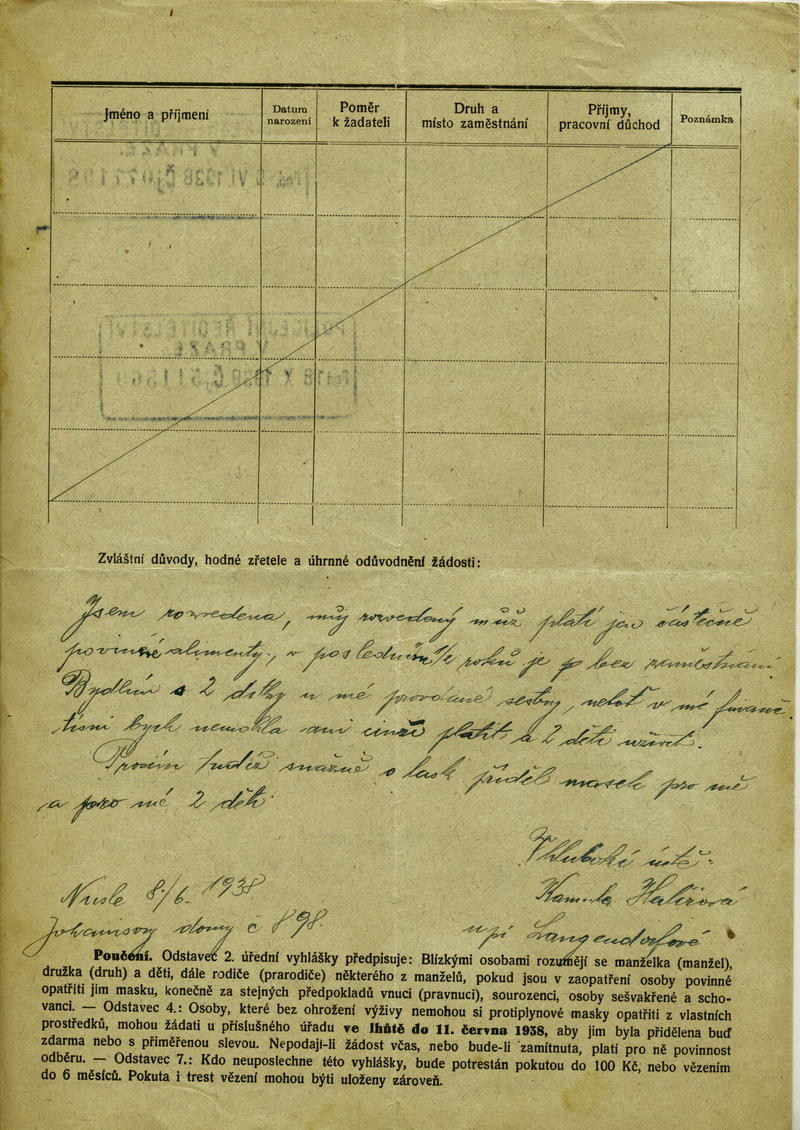 Jméno a příjmení
Datum narození
Poměr k žadateli
Druh a místo zaměstnání
Příjmy, pracovní důchod
Poznámka
Zvláštní důvody, hodné zřetele a úhrnné odůvodnění žádosti:
Jsem rozvedena, můj rozvedený muž platí jen částečně
povinné alimenty, v posledním 1/2 roků je bez zaměstnání
Bydlím s 2 dítky u mé provdané sestry, neboť v mé finanč.
tísni bych nemohla ani činži platit a 2 děti uživit.
Prosím tudíž snažně o lask. příděl masek pro mě
a pro mé 2 děti.
V hluboké úctě:
Nusle 8./6. 1938
Kamila Halířová
Johanisovy domy č 898.
u pí Langendorfové
Poučení. Odstavec 2. úřední vyhlášky předpisuje: Blízkými osobami rozumějí se manželka (manžel),
družka (druh) a děti, dále rodiče (prarodiče) některého z manželů, pokud jsou v zaopatření osoby povinné
opatřiti jim masku, konečně za stejných předpokladů vnuci (pravnuci), sourozenci, osoby sešvakřené a scho-
vanci. — Odstavec 4.: Osoby, které bez ohrožení výživy nemohou si protiplynové masky opatřiti z vlastních
prostředků, mohou žádati u příslušného úřadu ve lhůtě do 11. června 1938, aby jim byla přidělena buď
zdarma nebo s přiměřenou slevou. Nepodají-li žádost včas, nebo bude-li zamítnuta, platí pro ně povinnost
odběru. — Odstavec 7.: Kdo neuposlechne této vyhlášky, bude potrestán pokutou do 100 Kč, nebo vězením
do 6 měsíců. Pokuta i trest vězení mohou býti uloženy zároveň.